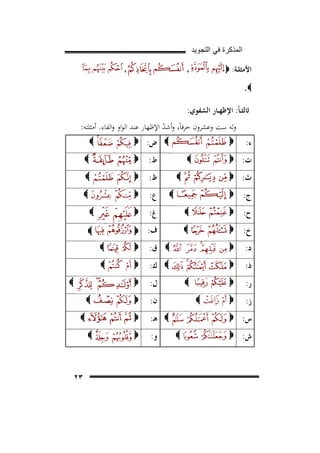 المذكرة في التجويد
الأمثلة: ﴿ إِلَيْهِم بِالْمَوَدَّةِ ﴾، ﴿ أَنفُسَكُم بِاتِّخَاذِكُمُ ﴾، ﴿ أَحْكُم بَيْنَهُم بِمَا ﴾.
ثالثاً: الإظهار الشفوي:
وله ست وعشرون حرفاً، وأشدّ الإظهار عند الواو والفاء. أمثلته:
ء: ﴿ ظَلَمْتُمْ أَنفُسَكُمْ ﴾ ض: ﴿ فِيكُمْ ضَعْفًا ﴾
ت: ﴿ وَأَنتُمْ تَتْلُونَ ﴾ ط: ﴿ مِنْهُمْ طَائِفَةٌ ﴾
ث: ﴿ مِن دِيَارِكُمْ ثُمَّ ﴾ ظ: ﴿ إِنَّكُمْ ظَلَمْتُمْ ﴾
ج: ﴿ إِلَيْكُمْ جَمِيعًا ﴾ ع: ﴿ مِنكُمْ عِشْرُونَ ﴾
ح: ﴿ غَنِمْتُمْ حَلَالًا ﴾ غ: ﴿ عَلَيْهِمْ غَيْرِ ﴾
خ: ﴿ أَنشَأْنَاهُ خَلْقًا ﴾ ف: ﴿ وَارْزُقُوهُمْ فِيهَا ﴾
د: ﴿ مِن قَبْلِهِمْ دَمَّرَ اللَّهُ ﴾ ق: ﴿ لَكُمْ قِيَامًا ﴾
ذ: ﴿ مَلَكَتْ أَيْمَانُكُمْ ذَلِكَ ﴾ ك: ﴿ أَمْ كُنتُمْ ﴾
ر: ﴿ عَلَيْكُمْ رَقِيبًا ﴾ ل:
ز: ﴿ أَمْ زَاغَتْ ﴾ ن: ﴿ وَلَكُمْ نِصْفُ ﴾
س: هـ: ﴿ ثُمَّ أَنتُمْ هَؤُلَاءِ ﴾
ش: ﴿ وَجَعَلْنَاكُمْ شُعُوبًا ﴾ و: ﴿ وَقُلُوبُهُمْ وَجِلَةٌ ﴾
٢٣